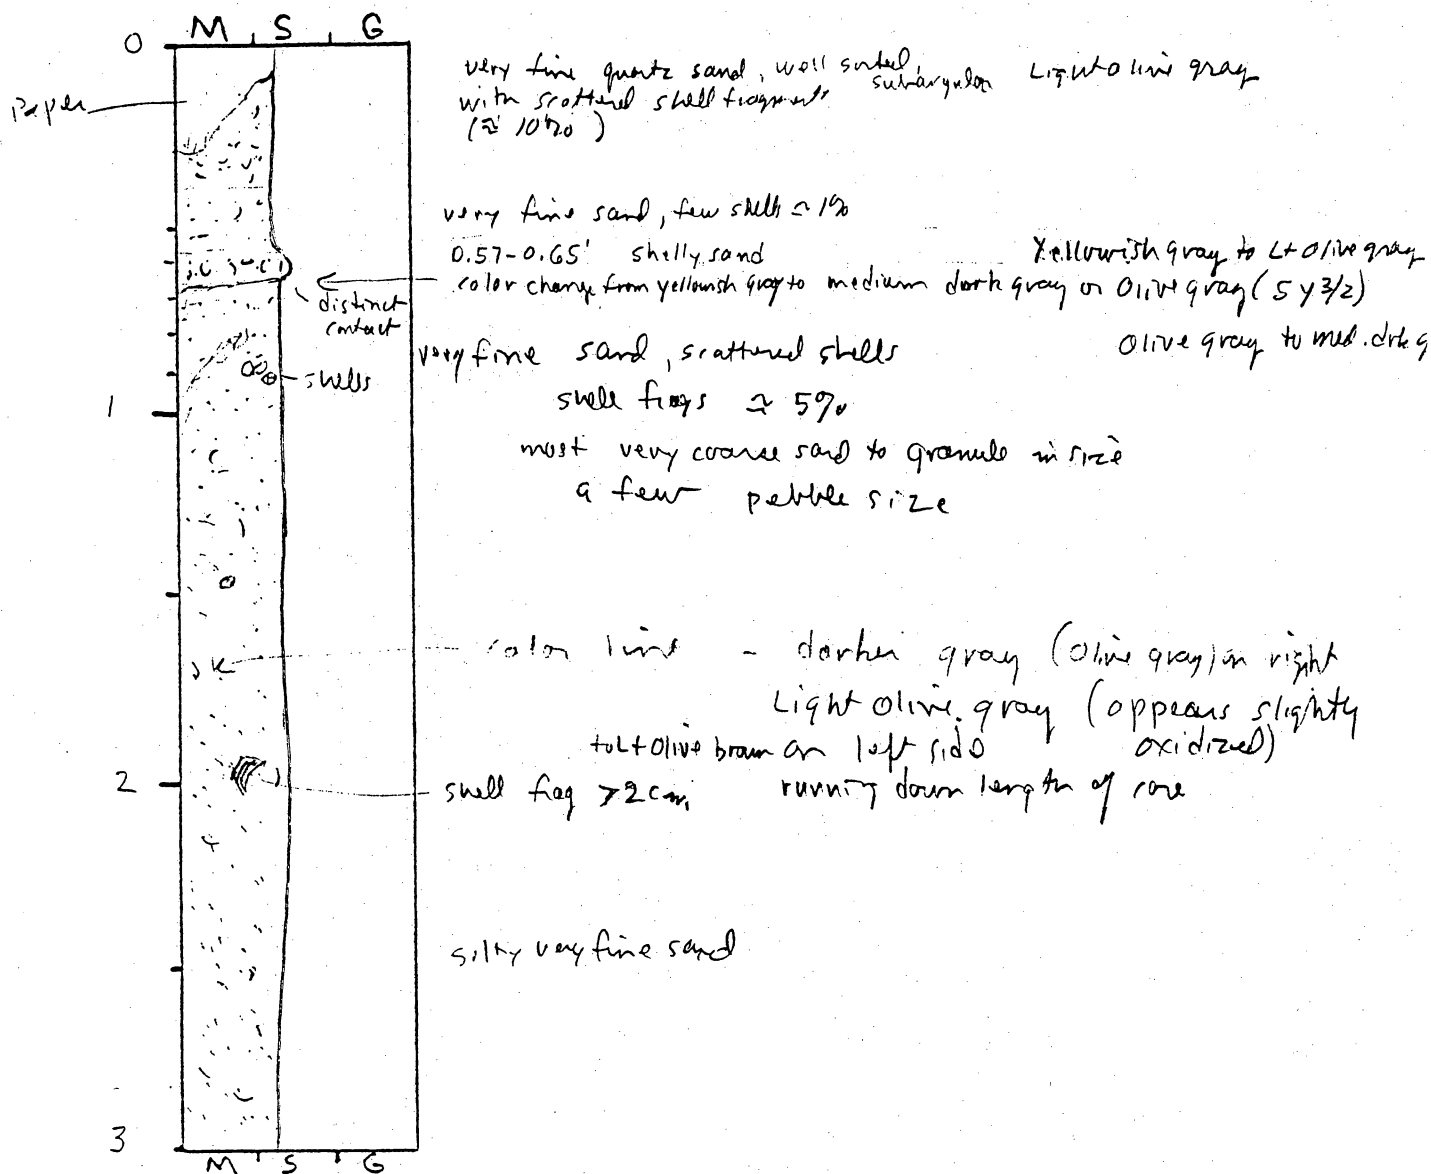 M S G
0
very fine quartz sand, well sorted, subangular Light olive gray
Paper
with scattered shell fragments
(≈ 10%)
very fine sand, few shells ≈ 1%
0.57-0.65' shelly sand Yellowish gray to Lt olive gray
color change from yellowish gray to medium dark gray or Olive gray (5 y 3/2)
distinct
contact
very fine sand, scattered shells Olive gray to med. drk g
shells
shell frags ≈ 5%
1
most very coarse sand to granule in size
a few pebble size
color line - darker gray (Olive gray) on right
Light olive gray (appears slightly
to Lt Olive brown on left side oxidized)
2
shell frag >2cm, running down length of core
silty very fine sand
3
M S G